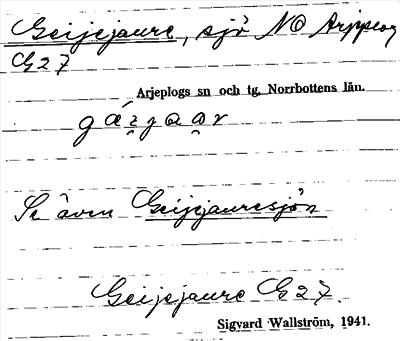 Geijejaure, sjö NO Arjeplog
G27
Arjeplogs sn och tg, Norrbottens län.
Se även Geijejauresjön
Geijejaure G27.
Sigvard Wallström, 1941.